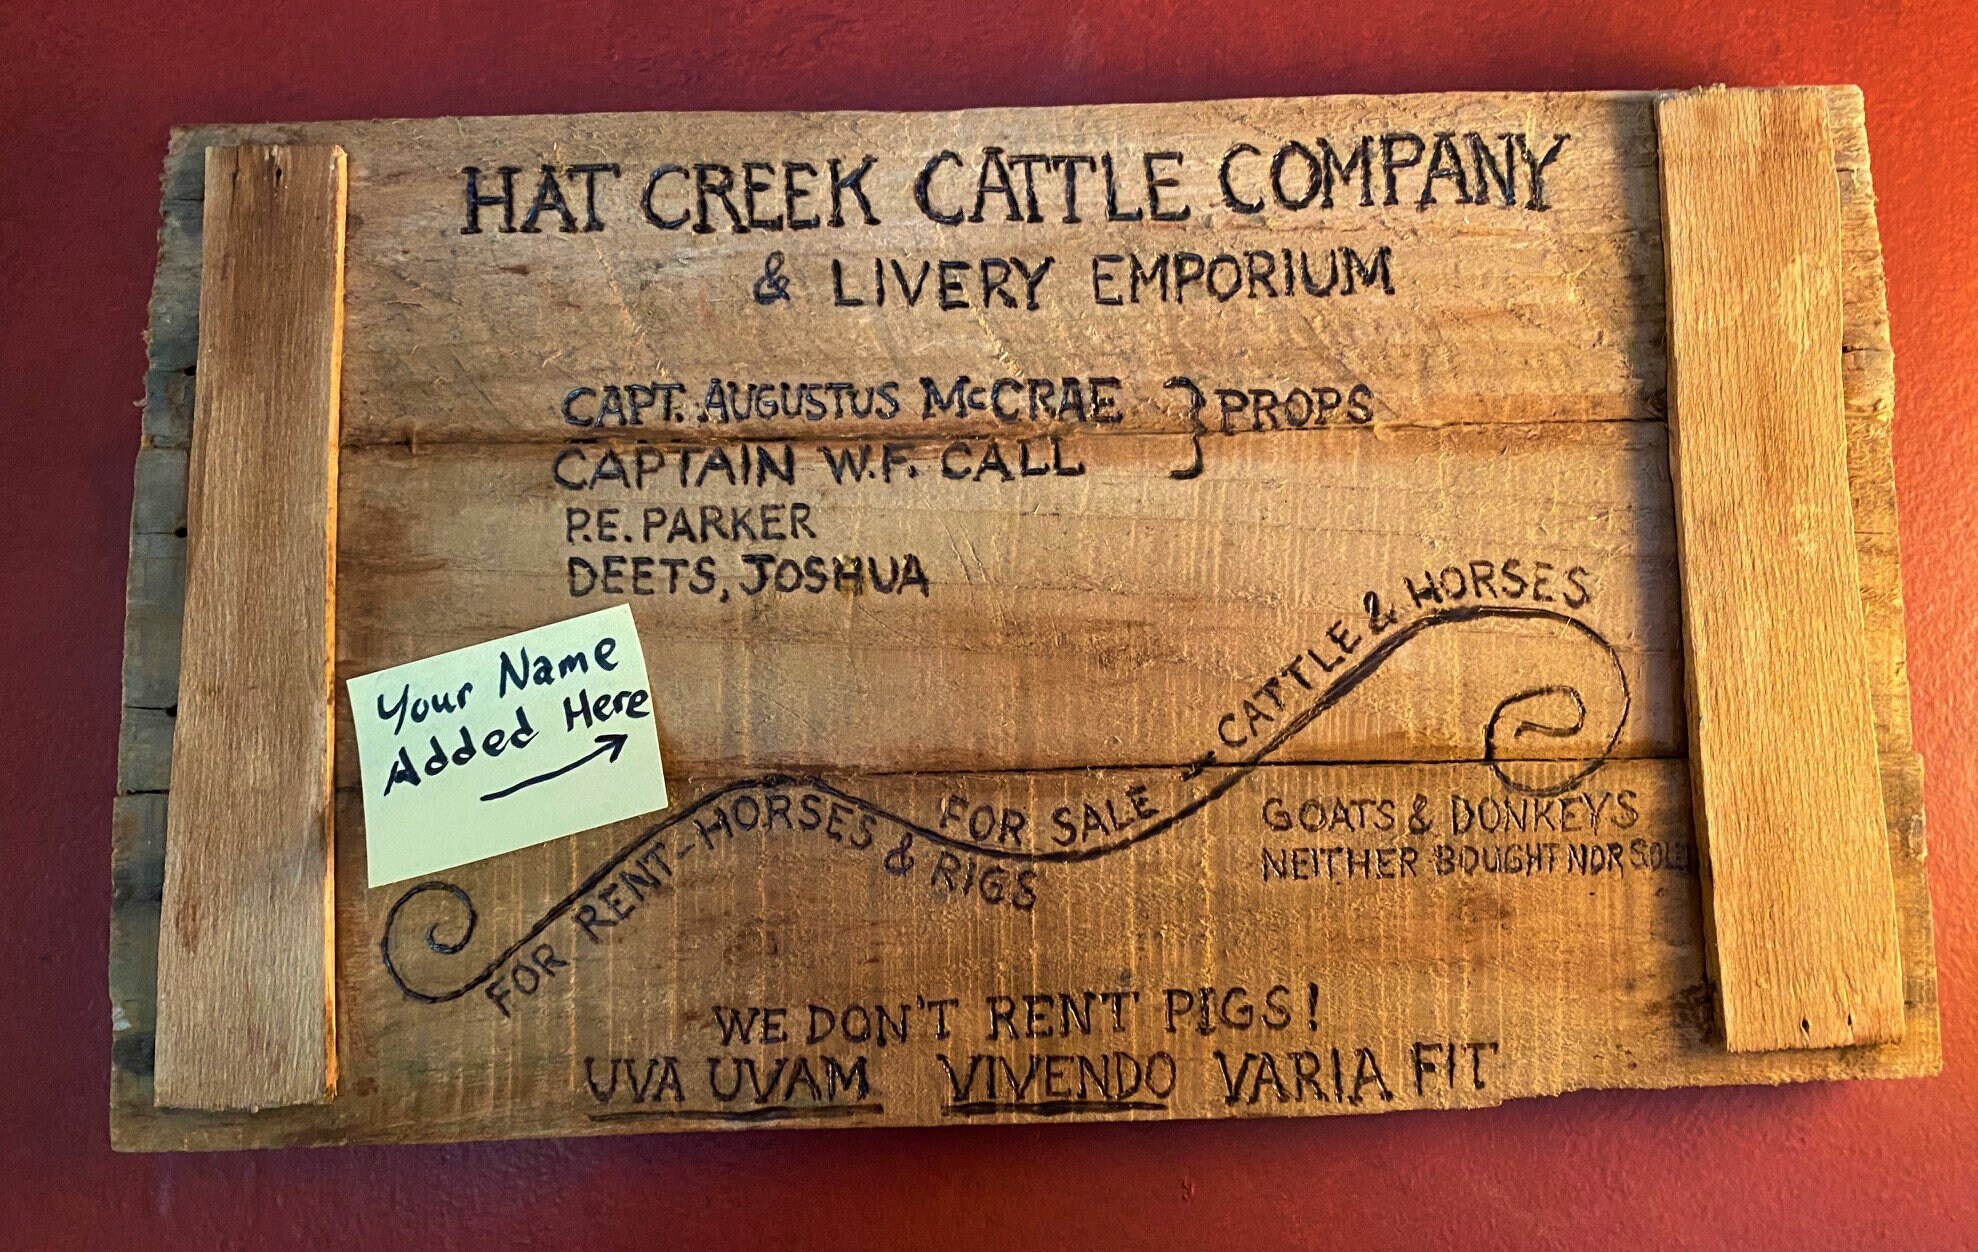 HAT CREEK CATTLE COMPANY
& LIVERY EMPORIUM
CAPT. AUGUSTUS McCRAE } PROPS
CAPTAIN W.F. CALL
P.E. PARKER
DEETS, JOSHUA
Your Name
Added Here
FOR RENT-HORSES & RIGS
FOR SALE - CATTLE & HORSES
GOATS & DONKEYS
NEITHER BOUGHT NOR SOLD
WE DON'T RENT PIGS!
UVA UVAM VIVENDO VARIA FIT